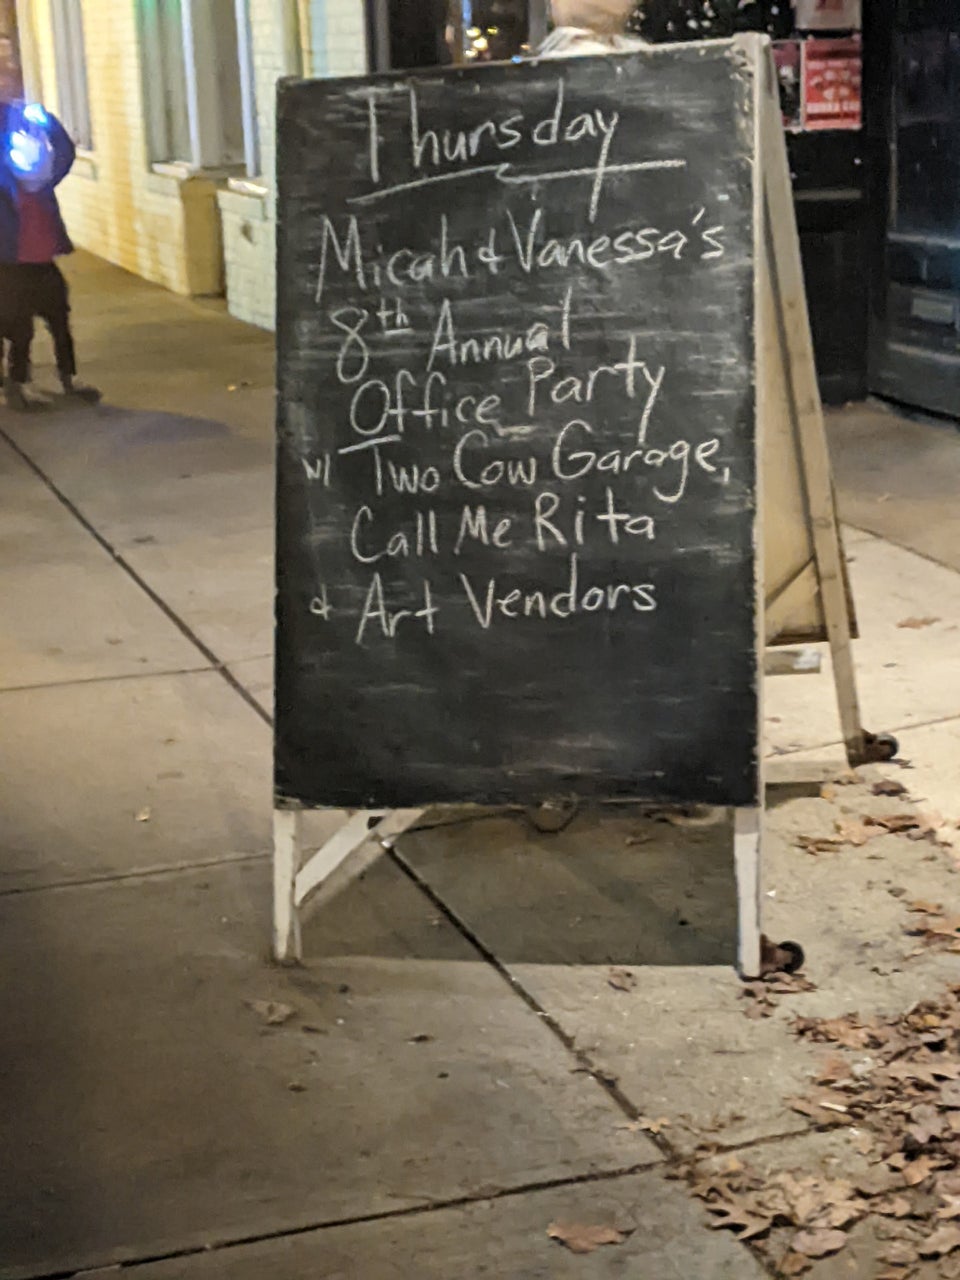 Thursday
Micah & Vanessa's
8th Annual
Office Party
w/ Two Cow Garage,
Call Me Rita
& Art Vendors